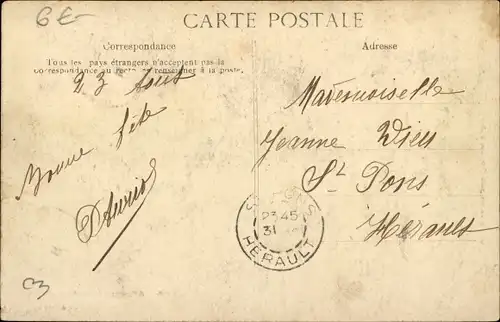 6 E-
CARTE POSTALE
Correspondance
Adresse
Tous les pays étrangers n'acceptent pas la
correspondance au recto se renseigner à la poste.
23 Aout
Bonne fête
Mademoiselle
Jeanne
St Pons
Hérault
23 45
31
HERAULT